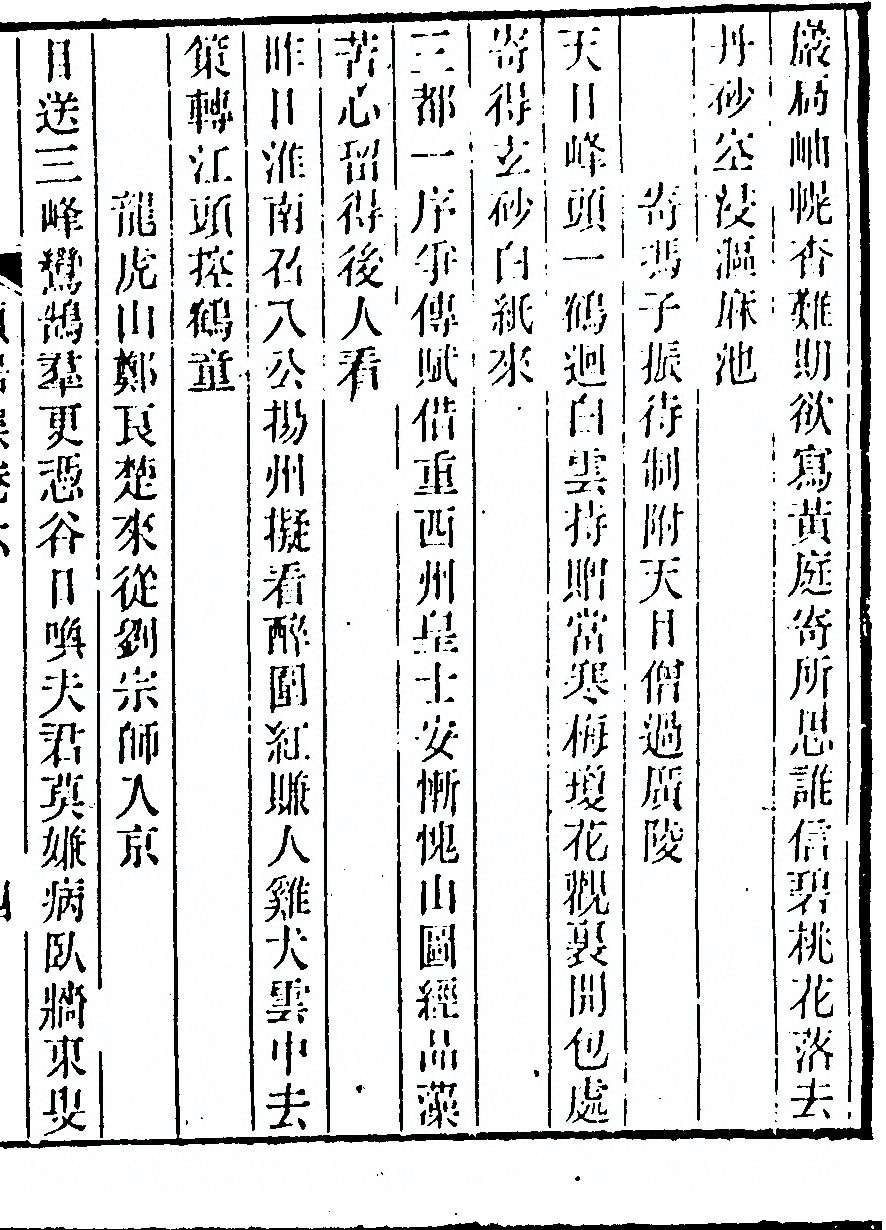 巖扃岫幌杳難期欲寫黃庭寄所思誰信碧桃花落去
丹砂空浸漚麻池
寄馮子振待制附天目僧過廣陵
天目峰頭一鶴迴白雲持贈當寒梅瓊花觀裏開包處
寄得玄砂白紙來
三都一序爭傳賦借重西州皇士安慚愧山圖經品藻
苦心留得後人看
昨日淮南召八公揚州擬看醉圍紅賺人雞犬雲中去
策轉江頭控鶴童
龍虎山鄭良楚來從劉宗師入京
目送三峰鸞鵠羣更憑谷口喚夫君莫嫌病臥牆東叟